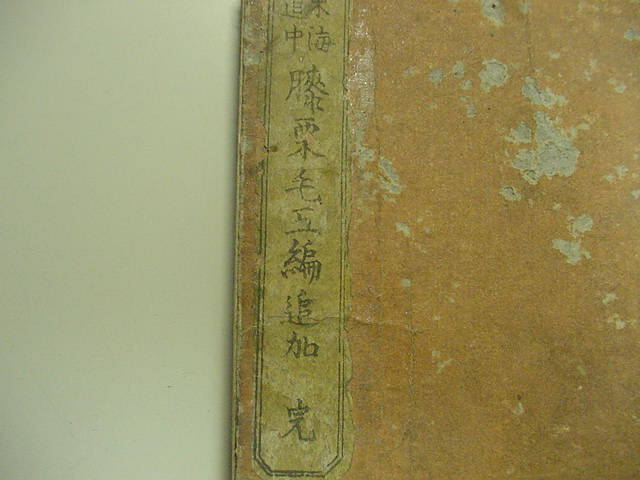 東海
道中
膝栗毛五編追加 完